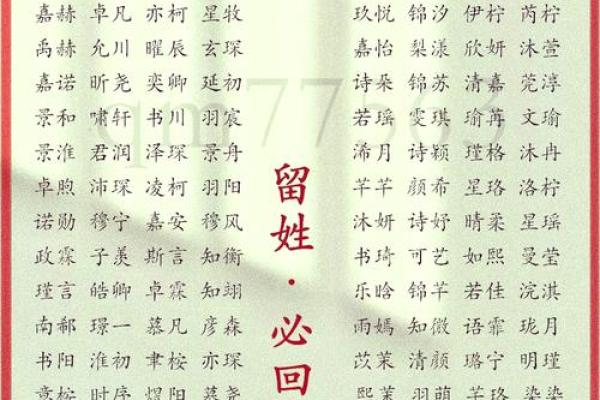 嘉赫 卓凡 亦柯 星牧
禹赫 允川 曜辰 玄琛
嘉诺 昕尧 奕卿 延初
景和 啸轩 书川 羽宸
景淮 君润 泽琛 景舟
卓煦 沛琛 凌柯 羽阳
诺勋 穆宁 嘉安 穆风
政霖 子羡 斯言 知衡
瑾言 皓卿 卓霖 知翊
南郗 璟一 慕凡 彦森
书阳 淮初 聿桉 亦琛
时序 煜阳 慕尧
留姓·必回
玖悦 锦汐 伊柠 芮柠
嘉怡 梨漾 欣妍 沐萱
诗朵 锦苏 清嘉 莞淳
若瑶 雯琪 瑜苒 文瑜
浠月 诗颖 瑾格 沐冉
芊芊 颜希 星珞 洛柠
沐妍 诗妤 晴柔 星瑶
书琦 可艺 如熙 曼莹
乐晗 锦芊 若佳 浣淇
雨嫣 知微 语霏 珑月
苡茉 清颜 璐宁 明瑾
熙茉 羽萌 芊珞 染染
qm77
3